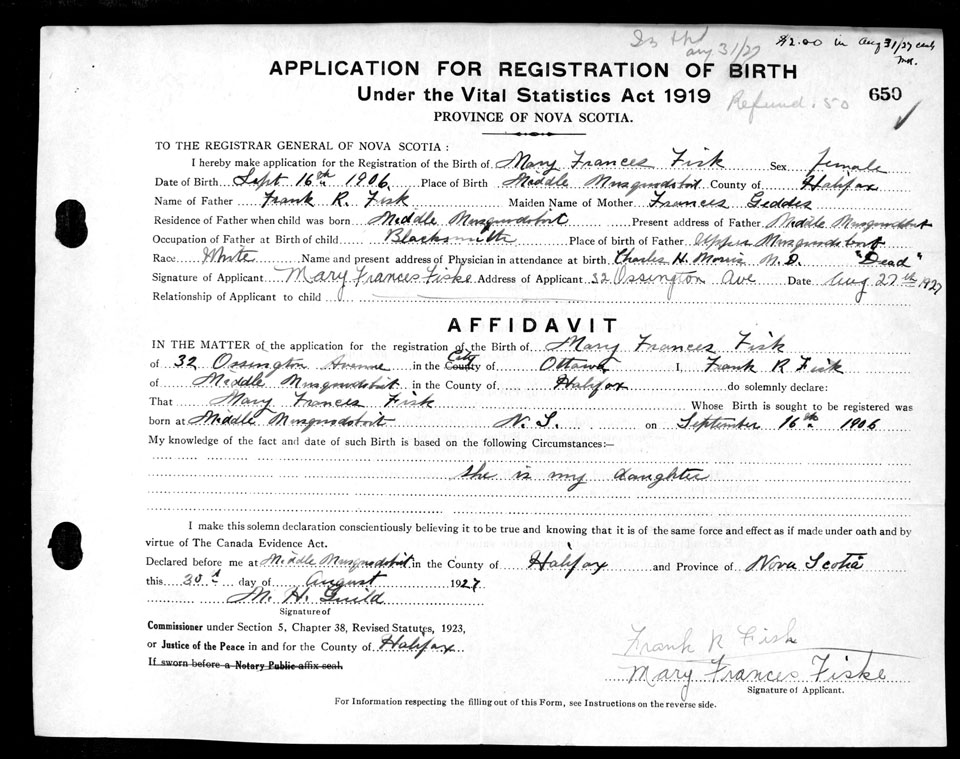 $2.00 in Aug 31/27
Aug 31/27
APPLICATION FOR REGISTRATION OF BIRTH
Under the Vital Statistics Act 1919
Refund .50
650
PROVINCE OF NOVA SCOTIA.
TO THE REGISTRAR GENERAL OF NOVA SCOTIA :
I hereby make application for the Registration of the Birth of Mary Frances Fisk Sex female
Date of Birth Sept 16th 1906 Place of Birth Middle Musquodoboit County of Halifax
Name of Father Frank R. Fisk Maiden Name of Mother Frances Geddes
Residence of Father when child was born Middle Musquodoboit Present address of Father Middle Musquodoboit
Occupation of Father at Birth of child Blacksmith Place of birth of Father Upper Musquodoboit
Race White Name and present address of Physician in attendance at birth Charles H. Morris M.D. "Dead"
Signature of Applicant Mary Frances Fiske Address of Applicant 32 Ossington Ave Date Aug 27th 1927
Relationship of Applicant to child
AFFIDAVIT
IN THE MATTER of the application for the registration of the Birth of Mary Frances Fisk
of 32 Ossington Avenue in the County City of Ottawa I, Frank R Fisk
of Middle Musquodoboit in the County of Halifax do solemnly declare:
That Mary Frances Fisk Whose Birth is sought to be registered was
born at Middle Musquodoboit N.S. on September 16th 1906
My knowledge of the fact and date of such Birth is based on the following Circumstances:—
she is my daughter
I make this solemn declaration conscientiously believing it to be true and knowing that it is of the same force and effect as if made under oath and by
virtue of The Canada Evidence Act.
Declared before me at Middle Musquodoboit in the County of Halifax and Province of Nova Scotia
this 30th day of August 1927
M. H. Guild
Signature of
Commissioner under Section 5, Chapter 38, Revised Statutes, 1923,
or Justice of the Peace in and for the County of Halifax
If sworn before a Notary Public affix seal.
Frank R Fisk
Mary Frances Fiske
Signature of Applicant.
For Information respecting the filling out of this Form, see Instructions on the reverse side.